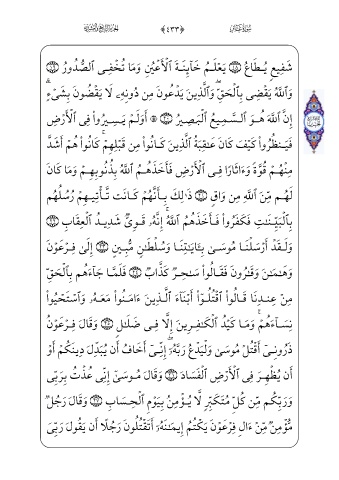 سُورَةُ غَافِرٍ ﴿٤٣٣﴾ الجزء الرابع والعشرون
شَفِيعٍ يُطَاعُ ۝١٨ يَعْلَمُ خَآئِنَةَ ٱلْأَعْيُنِ وَمَا تُخْفِى ٱلصُّدُورُ ۝١٩
وَٱللَّهُ يَقْضِى بِٱلْحَقِّ ۖ وَٱلَّذِينَ يَدْعُونَ مِن دُونِهِۦ لَا يَقْضُونَ بِشَىْءٍ ۗ
إِنَّ ٱللَّهَ هُوَ ٱلسَّمِيعُ ٱلْبَصِيرُ ۝٢٠ أَوَلَمْ يَسِيرُوا۟ فِى ٱلْأَرْضِ
فَيَنظُرُوا۟ كَيْفَ كَانَ عَٰقِبَةُ ٱلَّذِينَ كَانُوا۟ مِن قَبْلِهِمْ ۚ كَانُوا۟ هُمْ أَشَدَّ
مِنْهُمْ قُوَّةً وَءَاثَارًا فِى ٱلْأَرْضِ فَأَخَذَهُمُ ٱللَّهُ بِذُنُوبِهِمْ وَمَا كَانَ
لَهُم مِّنَ ٱللَّهِ مِن وَاقٍ ۝٢١ ذَٰلِكَ بِأَنَّهُمْ كَانَت تَّأْتِيهِمْ رُسُلُهُم
بِٱلْبَيِّنَٰتِ فَكَفَرُوا۟ فَأَخَذَهُمُ ٱللَّهُ ۚ إِنَّهُۥ قَوِىٌّ شَدِيدُ ٱلْعِقَابِ ۝٢٢
وَلَقَدْ أَرْسَلْنَا مُوسَىٰ بِـَٔايَٰتِنَا وَسُلْطَٰنٍ مُّبِينٍ ۝٢٣ إِلَىٰ فِرْعَوْنَ
وَهَٰمَٰنَ وَقَٰرُونَ فَقَالُوا۟ سَٰحِرٌ كَذَّابٌ ۝٢٤ فَلَمَّا جَآءَهُم بِٱلْحَقِّ
مِنْ عِندِنَا قَالُوا۟ ٱقْتُلُوٓا۟ أَبْنَآءَ ٱلَّذِينَ ءَامَنُوا۟ مَعَهُۥ وَٱسْتَحْيُوا۟
نِسَآءَهُمْ ۚ وَمَا كَيْدُ ٱلْكَٰفِرِينَ إِلَّا فِى ضَلَٰلٍ ۝٢٥ وَقَالَ فِرْعَوْنُ
ذَرُونِىٓ أَقْتُلْ مُوسَىٰ وَلْيَدْعُ رَبَّهُۥٓ ۖ إِنِّىٓ أَخَافُ أَن يُبَدِّلَ دِينَكُمْ أَوْ
أَن يُظْهِرَ فِى ٱلْأَرْضِ ٱلْفَسَادَ ۝٢٦ وَقَالَ مُوسَىٰٓ إِنِّى عُذْتُ بِرَبِّى
وَرَبِّكُم مِّن كُلِّ مُتَكَبِّرٍ لَّا يُؤْمِنُ بِيَوْمِ ٱلْحِسَابِ ۝٢٧ وَقَالَ رَجُلٌ
مُّؤْمِنٌ مِّنْ ءَالِ فِرْعَوْنَ يَكْتُمُ إِيمَٰنَهُۥٓ أَتَقْتُلُونَ رَجُلًا أَن يَقُولَ رَبِّىَ